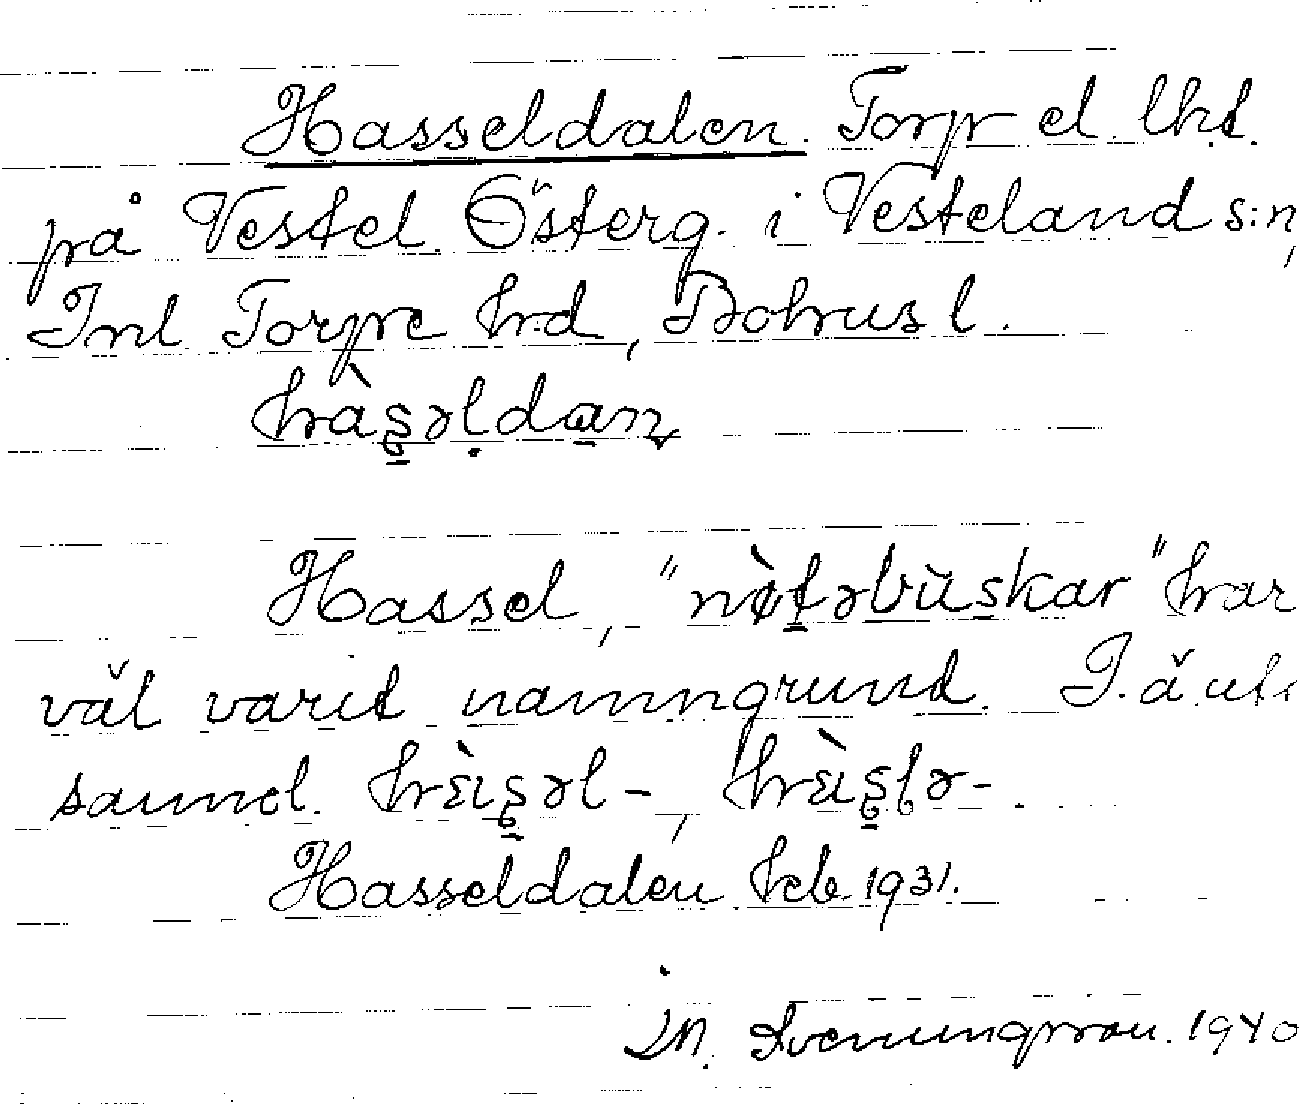 Hasseldalen. Torp el. lht.
på Vestel. Österg. i Vesteland s:n,
Inl Torpe hrd, Bohusl.
hàsəldan
Hassel, "nøtəbùskar" har
väl varit namngrund. I. ä. utt.
saml. hæ̀ısəl-, hæ̀ıslə-.
Hasseldalen heb 1931.
M. Svenungsson. 1940